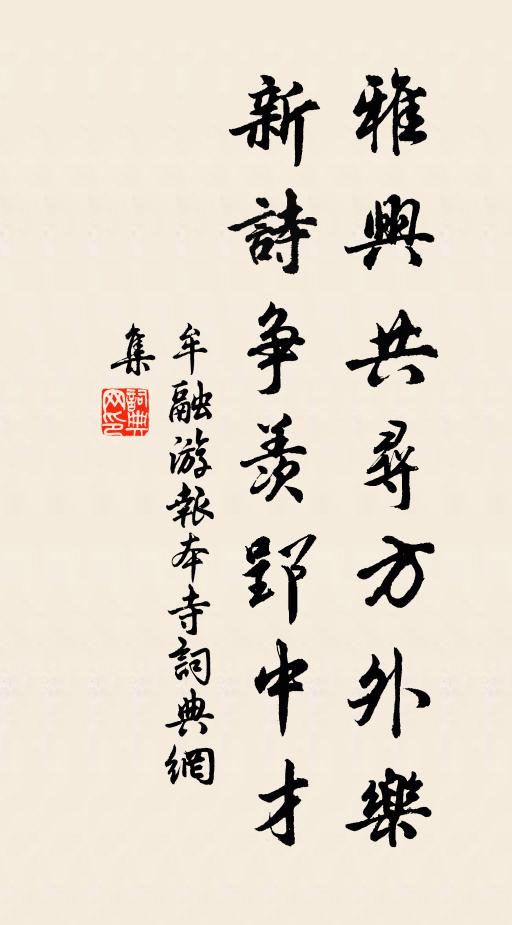 雅興共尋方外樂
新詩爭羨郢中才
牟融游報本寺詞典網
集
詞典網印